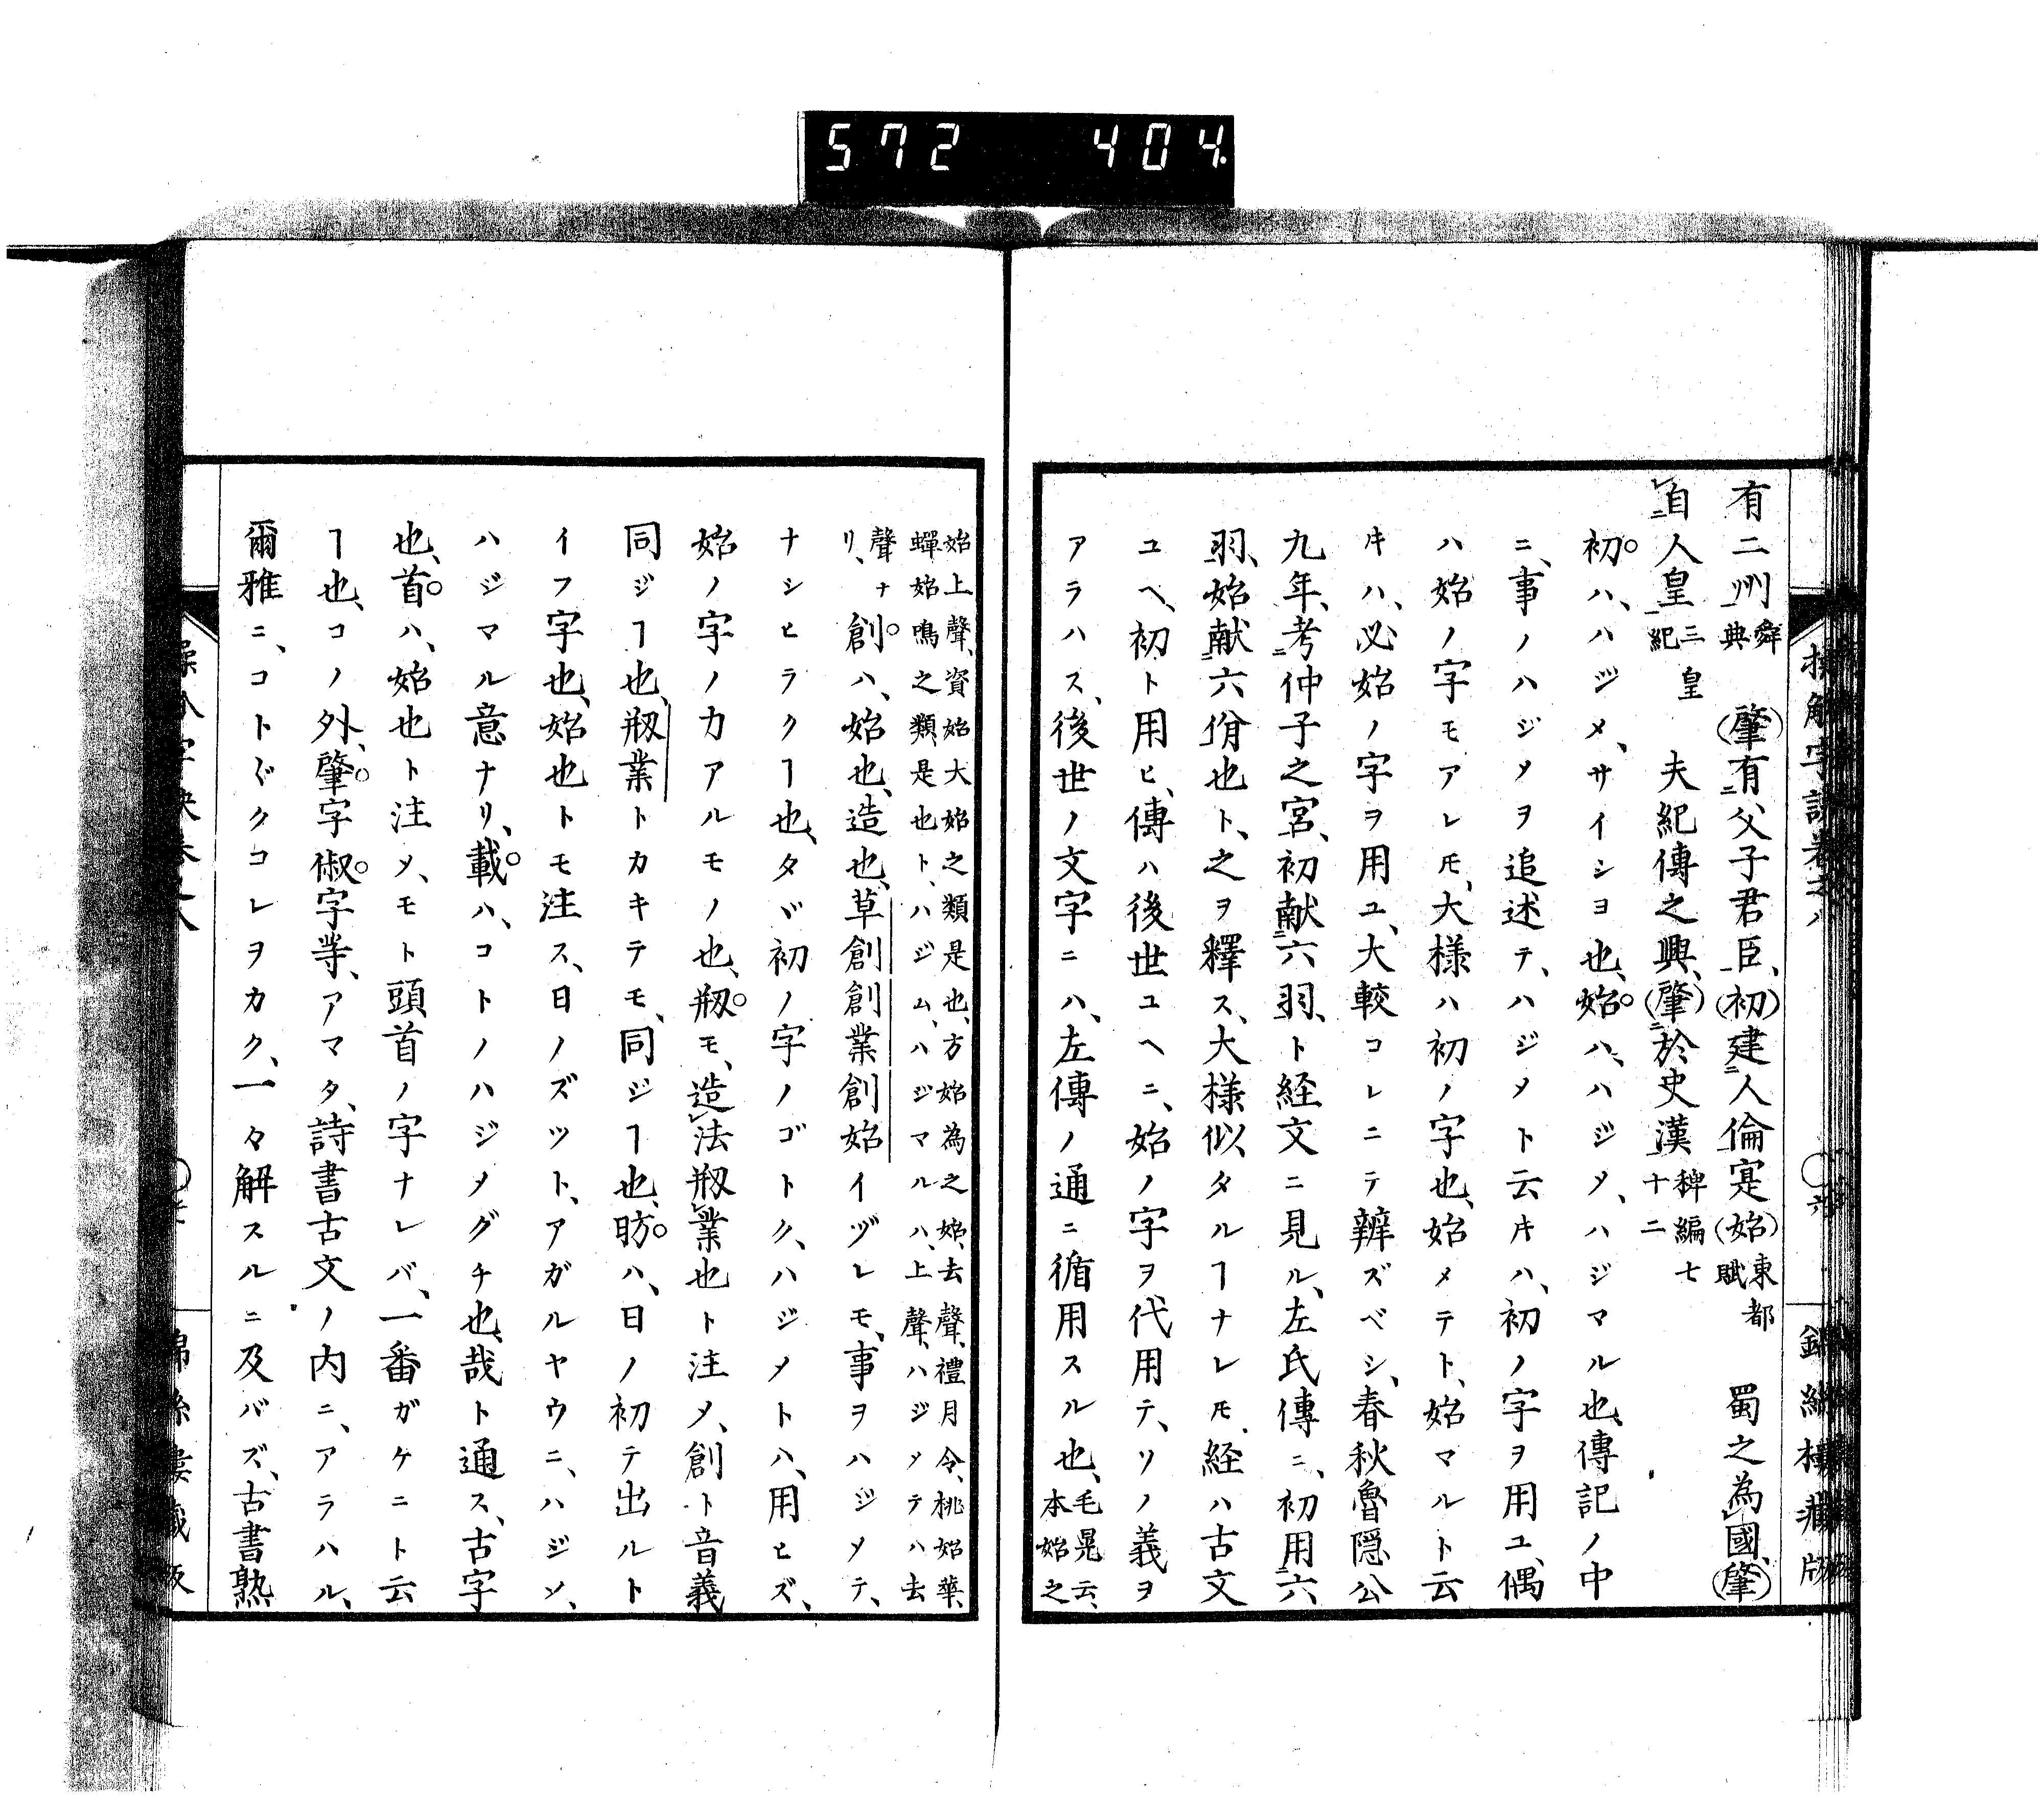 572 404
有二州舜典 肇有父子君臣、初建人倫寔始東都賦 蜀之為國、肇
自人皇三皇紀 夫紀傳之興、肇於史漢稗編七十二
初ハ、ハジメ、サイショ也、始ハ、ハジメ、ハジマル也、傳記ノ中
ニ、事ノハジメヲ追述テ、ハジメト云キハ、初ノ字ヲ用ユ、偶
ハ始ノ字モアレ𪜈、大様ハ初ノ字也、始メテト、始マルト云
キハ、必始ノ字ヲ用ユ、大較コレニテ辨ズベシ、春秋魯隠公
九年、考仲子之宮、初献六羽、ト経文ニ見ル、左氏傳ニ、初用六
羽、始献六佾也ト、之ヲ釋ス、大様似タルヿナレ𪜈、経ハ古文
ユヘ、初ト用ヒ、傳ハ後世ユヘニ、始ノ字ヲ代用テ、ソノ義ヲ
アラハス、後世ノ文字ニハ、左傳ノ通ニ循用スル也、毛晃云、本始之
始上聲、資始大始之類是也、方始為之始、去聲、禮月令、桃始華、
蟬始鳴之類、是也ト、ハジム、ハジマルハ、上聲、ハジメテハ去
聲ナリ、創ハ、始也、造也、草創創業創始イヅレモ、事ヲハジメテ、
ナシヒラクヿ也、タヾ初ノ字ノゴトク、ハジメトハ、用ヒズ、
始ノ字ノカアルモノ也、剏モ、造法剏業也ト注メ、創ト音義
同ジヿ也、剏業トカキテモ、同ジヿ也、昉ハ、日ノ初テ出ルト
イフ字也、始也トモ注ス、日ノズット、アガルヤウニ、ハジメ、
ハジマル意ナリ、載ハ、コトノハジメグチ也、哉ト通ス、古字
也、首ハ、始也ト注メ、モト頭首ノ字ナレバ、一番ガケニト云
ヿ也、コノ外、肇字俶字等、アマタ、詩書古文ノ内ニ、アラハル、
爾雅ニ、コトゞクコレヲカク、一々解スルニ及バズ、古書熟